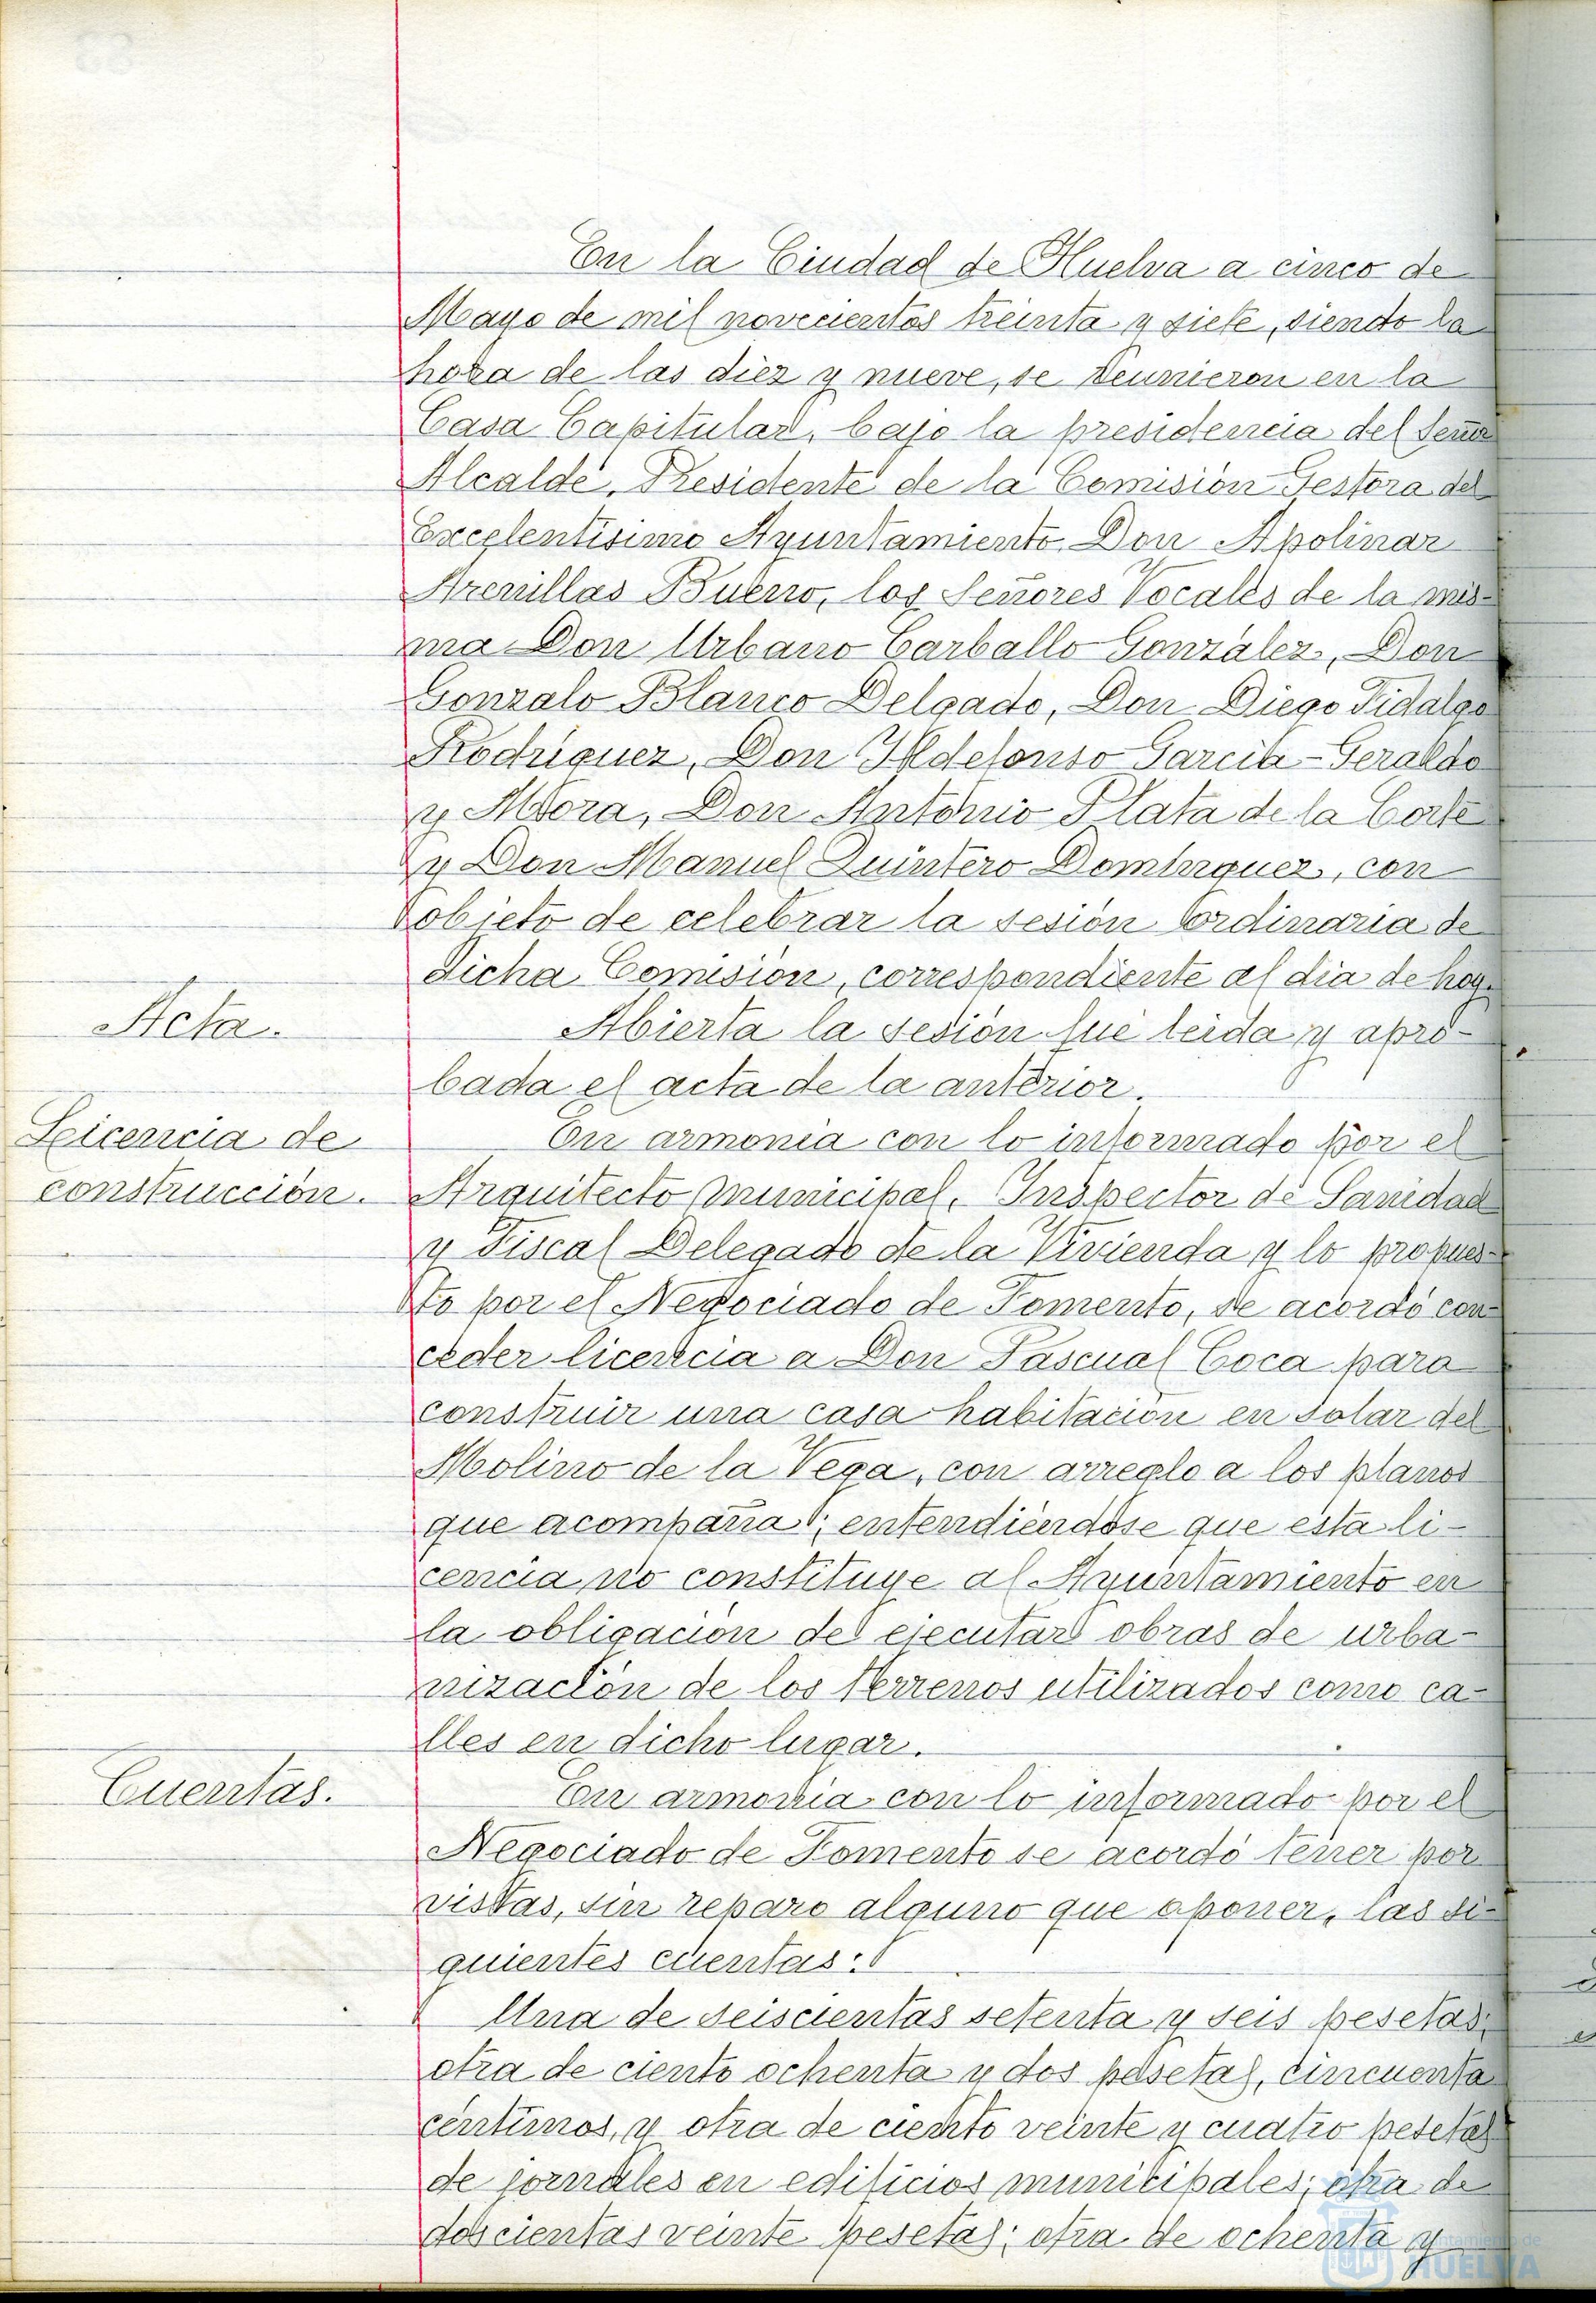 En la Ciudad de Huelva a cinco de
Mayo de mil novecientos treinta y siete, siendo la
hora de las diez y nueve, se reunieron en la
Casa Capitular, bajo la presidencia del Señor
Alcalde, Presidente de la Comisión Gestora del
Excelentísimo Ayuntamiento, Don Apolinar
Arenillas Bueno, los Señores Vocales de la mis-
ma Don Urbano Carballo González, Don
Gonzalo Blanco Delgado, Don Diego Fidalgo
Rodríguez, Don Ildefonso García-Geraldo
y Mora, Don Antonio Plata de la Corte
y Don Manuel Quintero Domínguez, con
objeto de celebrar la sesión ordinaria de
dicha Comisión, correspondiente al día de hoy.
Acta.
Abierta la sesión fué leida y apro-
bada el acta de la anterior.
Licencia de
construcción.
En armonía con lo informado por el
Arquitecto municipal, Inspector de Sanidad
y Fiscal Delegado de la Vivienda y lo propues-
to por el Negociado de Fomento, se acordó con-
ceder licencia a Don Pascual Coca para
construir una casa habitación en solar del
Molino de la Vega, con arreglo a los planos
que acompaña; entendiéndose que esta li-
cencia no constituye al Ayuntamiento en
la obligación de ejecutar obras de urba-
nización de los terrenos utilizados como ca-
lles en dicho lugar.
Cuentas.
En armonía con lo informado por el
Negociado de Fomento se acordó tener por
vistas, sin reparo alguno que oponer, las si-
guientes cuentas:
Una de seiscientas setenta y seis pesetas;
otra de ciento ochenta y dos pesetas, cincuenta
céntimos, y otra de ciento veinte y cuatro pesetas
de jornales en edificios municipales; otra de
doscientas veinte pesetas; otra de ochenta y
Ayuntamiento de
HUELVA